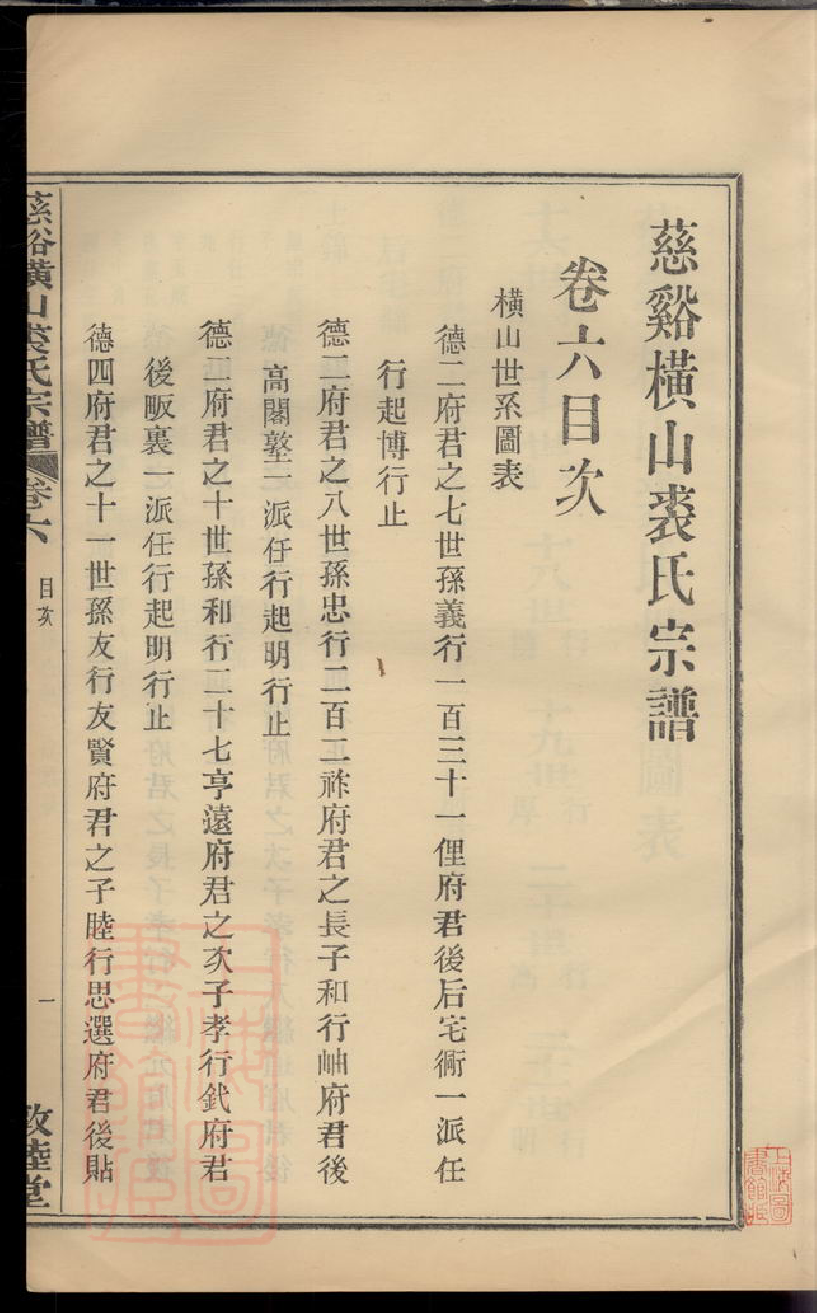 慈谿橫山裘氏宗譜
卷六目次
橫山世系圖表
德二府君之七世孫義行一百三十一俚府君後后宅衕一派任
行起博行止
德二府君之八世孫忠行二百二祩府君之長子和行岫府君後
高閣墪一派仟行起明行止
德二府君之十世孫和行二十七亨遠府君之次子孝行釴府君
後畈裏一派任行起明行止
德四府君之十一世孫友行友賢府君之子睦行思選府君後貼
慈谿橫山裘氏宗譜 卷六 目次 一 敦睦堂
上海圖書館藏